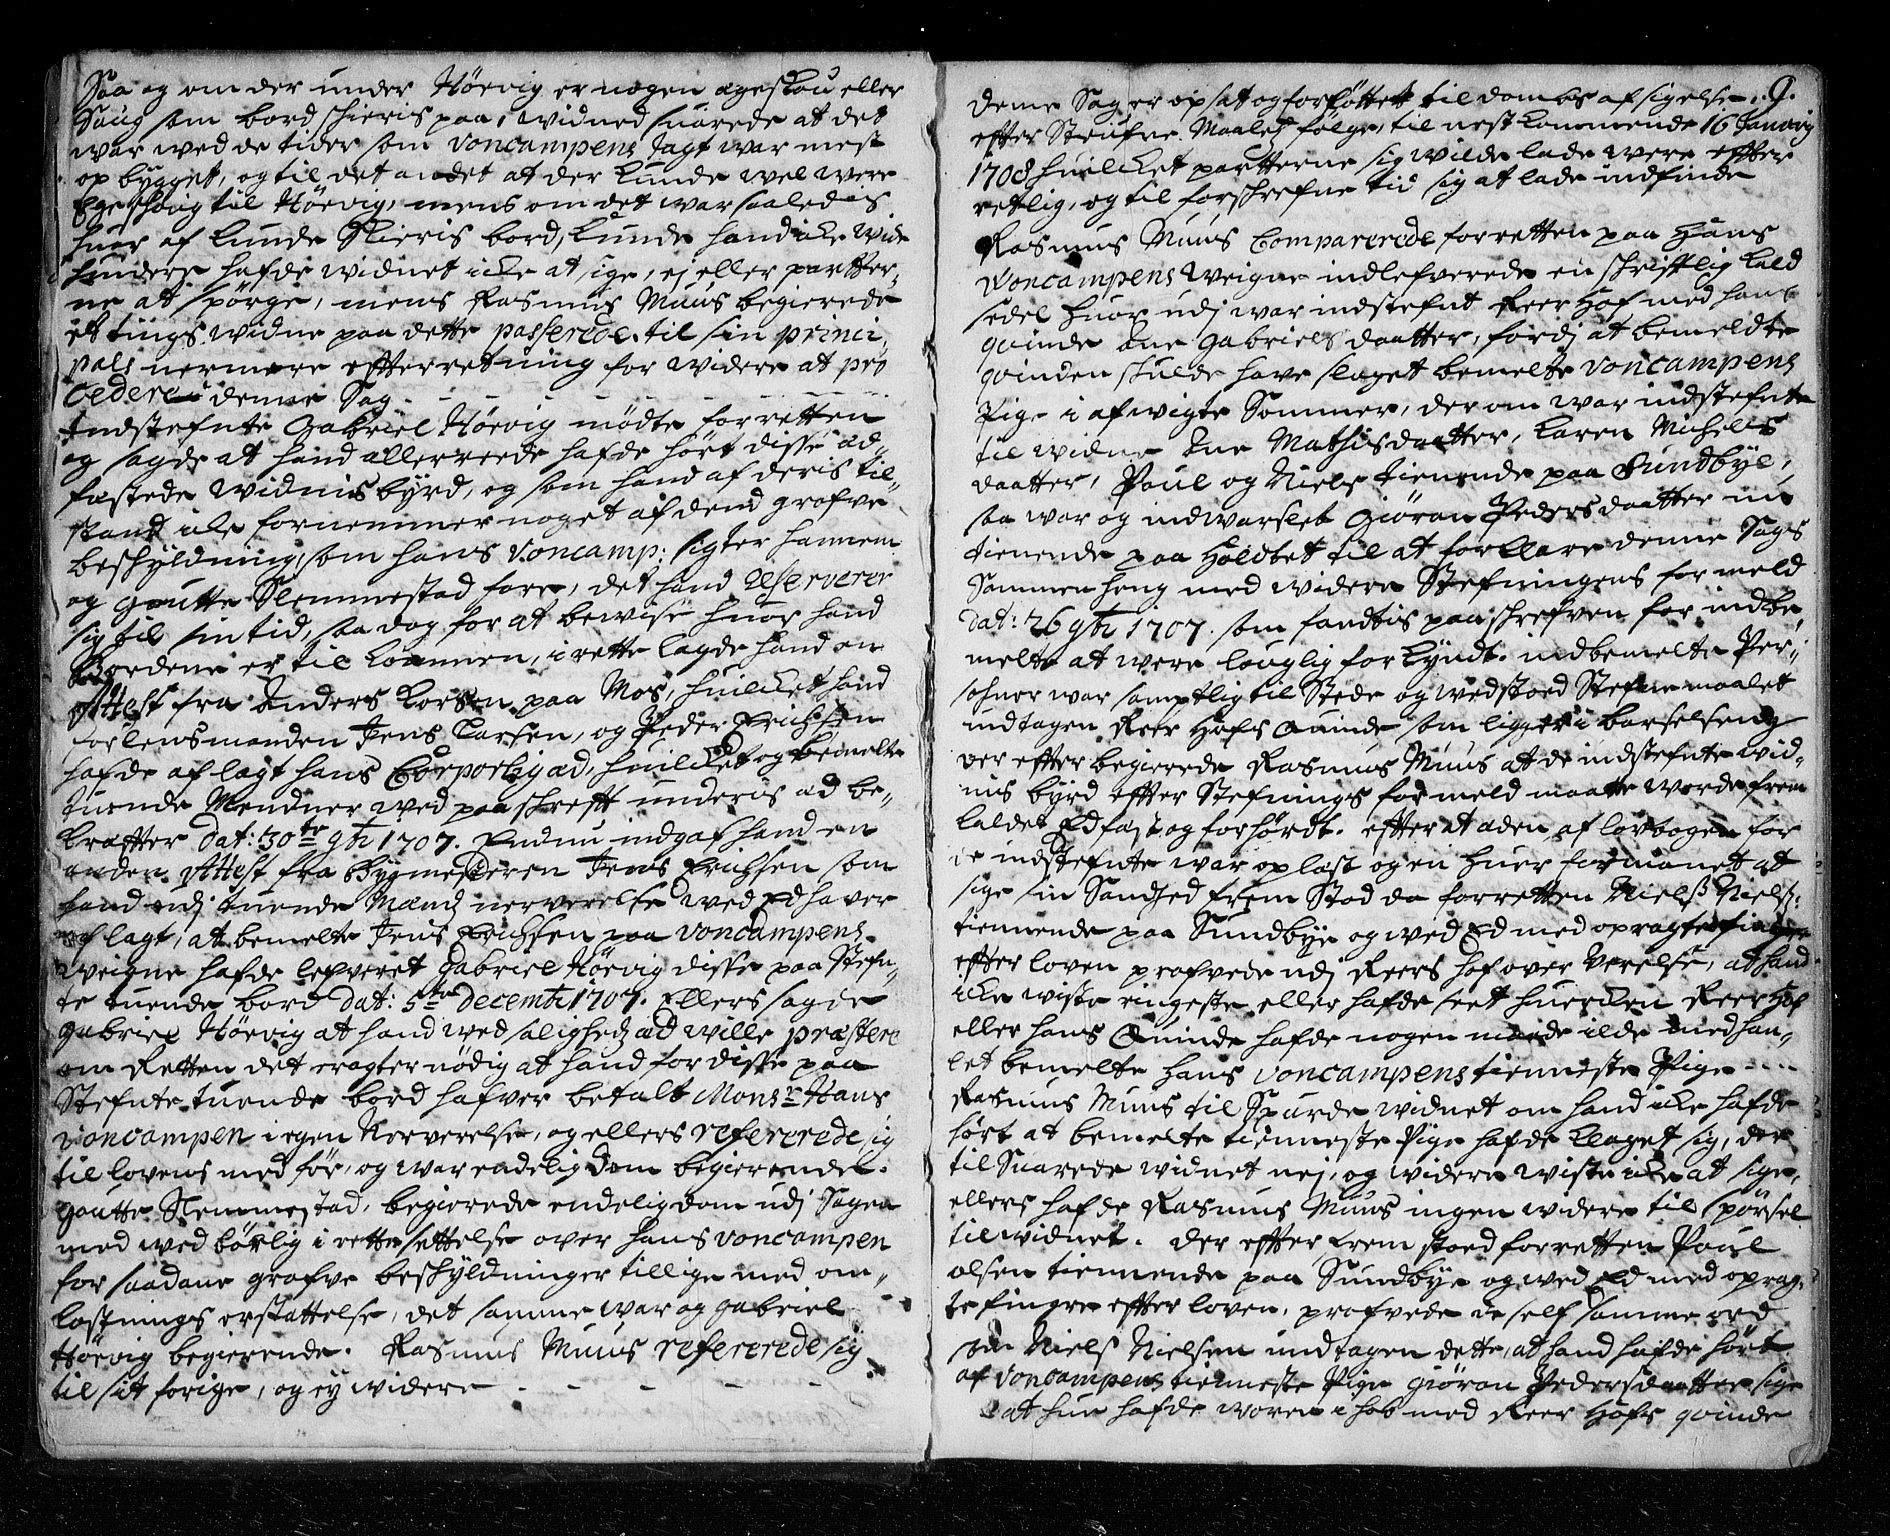 Saa og om der under Höevig er nogen egeskou eller
Saug som bord schieris paa, widned suarede at det
war wed de tider som Voncampens Jagt war mest
op bygget, og til det andet at der kunde vel were
Egeschoug til Höevig, mens om det war saaledes
huor af kunde Skieris bord, kunde hand icke wide
hundere hafde widnet icke at sige, ej eller partter-
ne at spörge, mens Rasmus Muus begierede
et tings widne paa dette passerede til sin princi
pals nermere efterretning for widere at pro
cedere i denne Sag - - -
Indstefnte Gabriel Höevig mödte for retten
og sagde at hand allerrede hafde hört disse ad-
fæstede Widnisbyrd, og som hand af deris til-
stand icke fornemmer noget af dend grofve
beskyldning, som hans Voncamp: sigter hannem
og Goutte Slemmestad fore, det hand reserverer
sig til sin tid, saa dog for at bewise huor hand
Bordene er til kommen, i rette lagde hand en
Attest fra Anders Larsen paa Mos, huilcket hand
for lensmanden Jens Larsen, og Peder Erichsen
hafde aflagt hans Corporlig æd, huilcket og bemelte
tuende Mendner med paaschrefft underis æd be-
krafter Dat: 30te 9br 1707. Endnu indgaf hand en
anden Attest fra Bygmesteren Jens Erichsen som
hand udj tuende Mænds nerverelse wed Ed haver
aflagt, at bemelte Jens Erichsen paa Voncampens
weigne hafde lefveret Gabriel Höevig disse paa Stefn-
te tuende bord Dat: 5te Decembr 1707. Ellers sagde
Gabriel Höevig at hand wed saligheds æd wille præstere
om Retten det eragter nödig at hand for disse paa
Stefnte tuende bord hafver betalt Monsr Hans
Voncampen i egen Nerverelse, og ellers refererede sig
til lovens medför, og war endelig Dom begierendes.
Goutte Slemmestad, begierede endelig dom udj Sagen
med wed börlig i rette settelse over Hans Voncampen
for saadane grofve beskyldninger tillige med om-
kostnings erstattelse, det samme war og Gabriel
Höevig begierende. Rasmus Muus refererede sig
til sit forige, og ey widere - - - -
9.
denne Sag er opsat og forföttet til dombs afsigelse,
efter Steufne Maalets fölge, til nest kommende 16 Januarij
1708 huilcket partterne sig wilde lade were effter
retlig, og til forschrefne tid sig at lade indfinde
Rasmus Muus Comparerede for retten paa Hans
Voncampens weigne indlefverede en schrifftlig kald
sedel huor udj war indstefnt Reer Hof med hans
quinde Ane Gabrielsdaatter, fordj at bemeldte
quinden skulde have slaget bemelte Voncampens
Pige i afwigte Sommer, der om war indstefnte
til widne Ane Mathisdaatter, Karen Michels
daatter, Poul og Niels tienende paa Sundbye,
saa war og indwarslet Giöran Pedersdaatter nu
tienende paa Holdbet til at forklare denne Sags
Sammenheng med widere Stefningens formeld
Dat: 26 9br 1707. som fandtis paaschrefven for indbe-
melte at were louglig forkyndt. indbemelte Per-
sohner war samptlig til Stede og wedstoed Stefnemaalet
undtagen Reer Hofs Quinde som ligger i barselseng
der effter begierede Rasmus Muus at de indstefnte wid-
nis byrd effter Stefnings formeld maatte worde frem
kaldet Edfæst og forhördt. efter at æden af lovbogen for
de indstefnte war oplæst og en huer formanet at
sige sin Sandhed frem Stod da for retten Niels Niels:
tiennende paa Sundbye og wed Ed med opragte finger
effter loven profvede udj Reers hof over Verelse, at hand
icke wiste ringeste eller hafde seet huercken Reer Hof
eller hans Quinde hafde nogen maade ilde medhan-
let bemelte Hans Voncampens tienneste Pige - - - -
Rasmus Muus til Spurde widnet om hand icke hafde
hört at bemelte tienneste Pige hafde klaget sig, der
til Suarede widnet nej, og widere wiste icke at sige,
ellers hafde Rasmus Muus ingen widere til spörsel
til widnet. der effter frem stoed for retten Poul
Olsen tiennende paa Sundbye og wed Ed med oprag-
te fingre effter loven, profvede de self samme ord
som Niels Nielsen undtagen dette, at hand hafde hört
af Voncampens tienneste Pige Giöran Pedersdaatter sige
at hun hafde woren i hob med Reer Hofs quinde